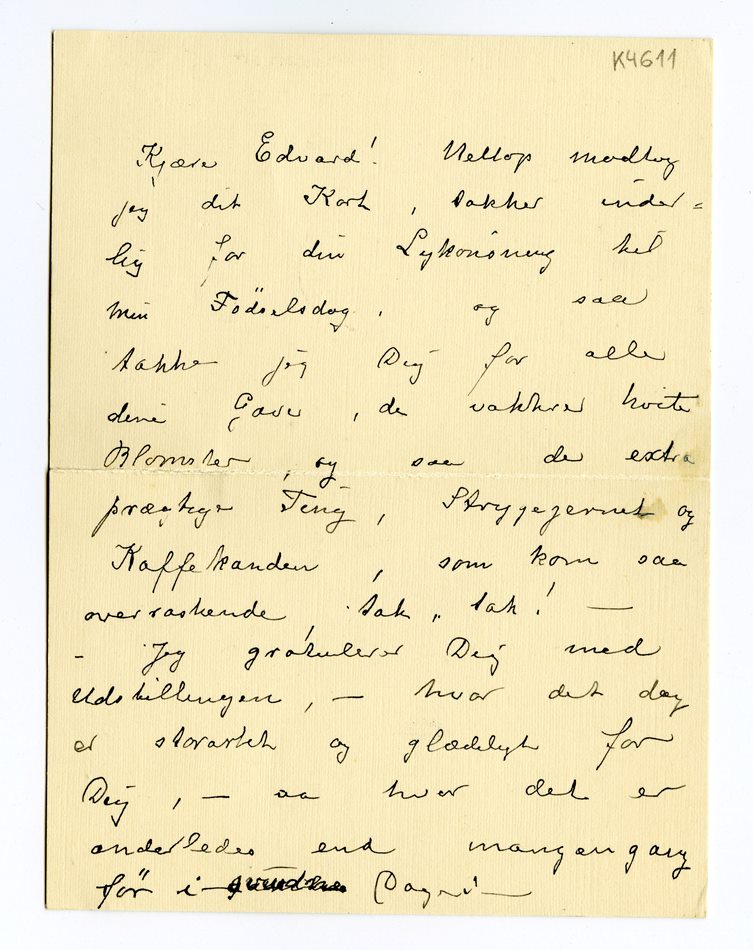 K4611
Kjære Edvard! Nettop modtog
jeg dit Kort, takker inder=
lig for din Lykønsning til
min Födselsdag, og saa
takker jeg Dig for alle
dine Gaver, de vakkre hvite
Blomster, og saa de extra
prægtige Ting, Strygejernet og
Kaffekanden, som kom saa
overraskende, tak, tak! —
– Jeg gratulerer Dig med
Udstillingen, — hvor det dog
er storartet og glædeligt for
Dig, — aa hvor det er
anderledes end mangengang
för i svundne Dage! —